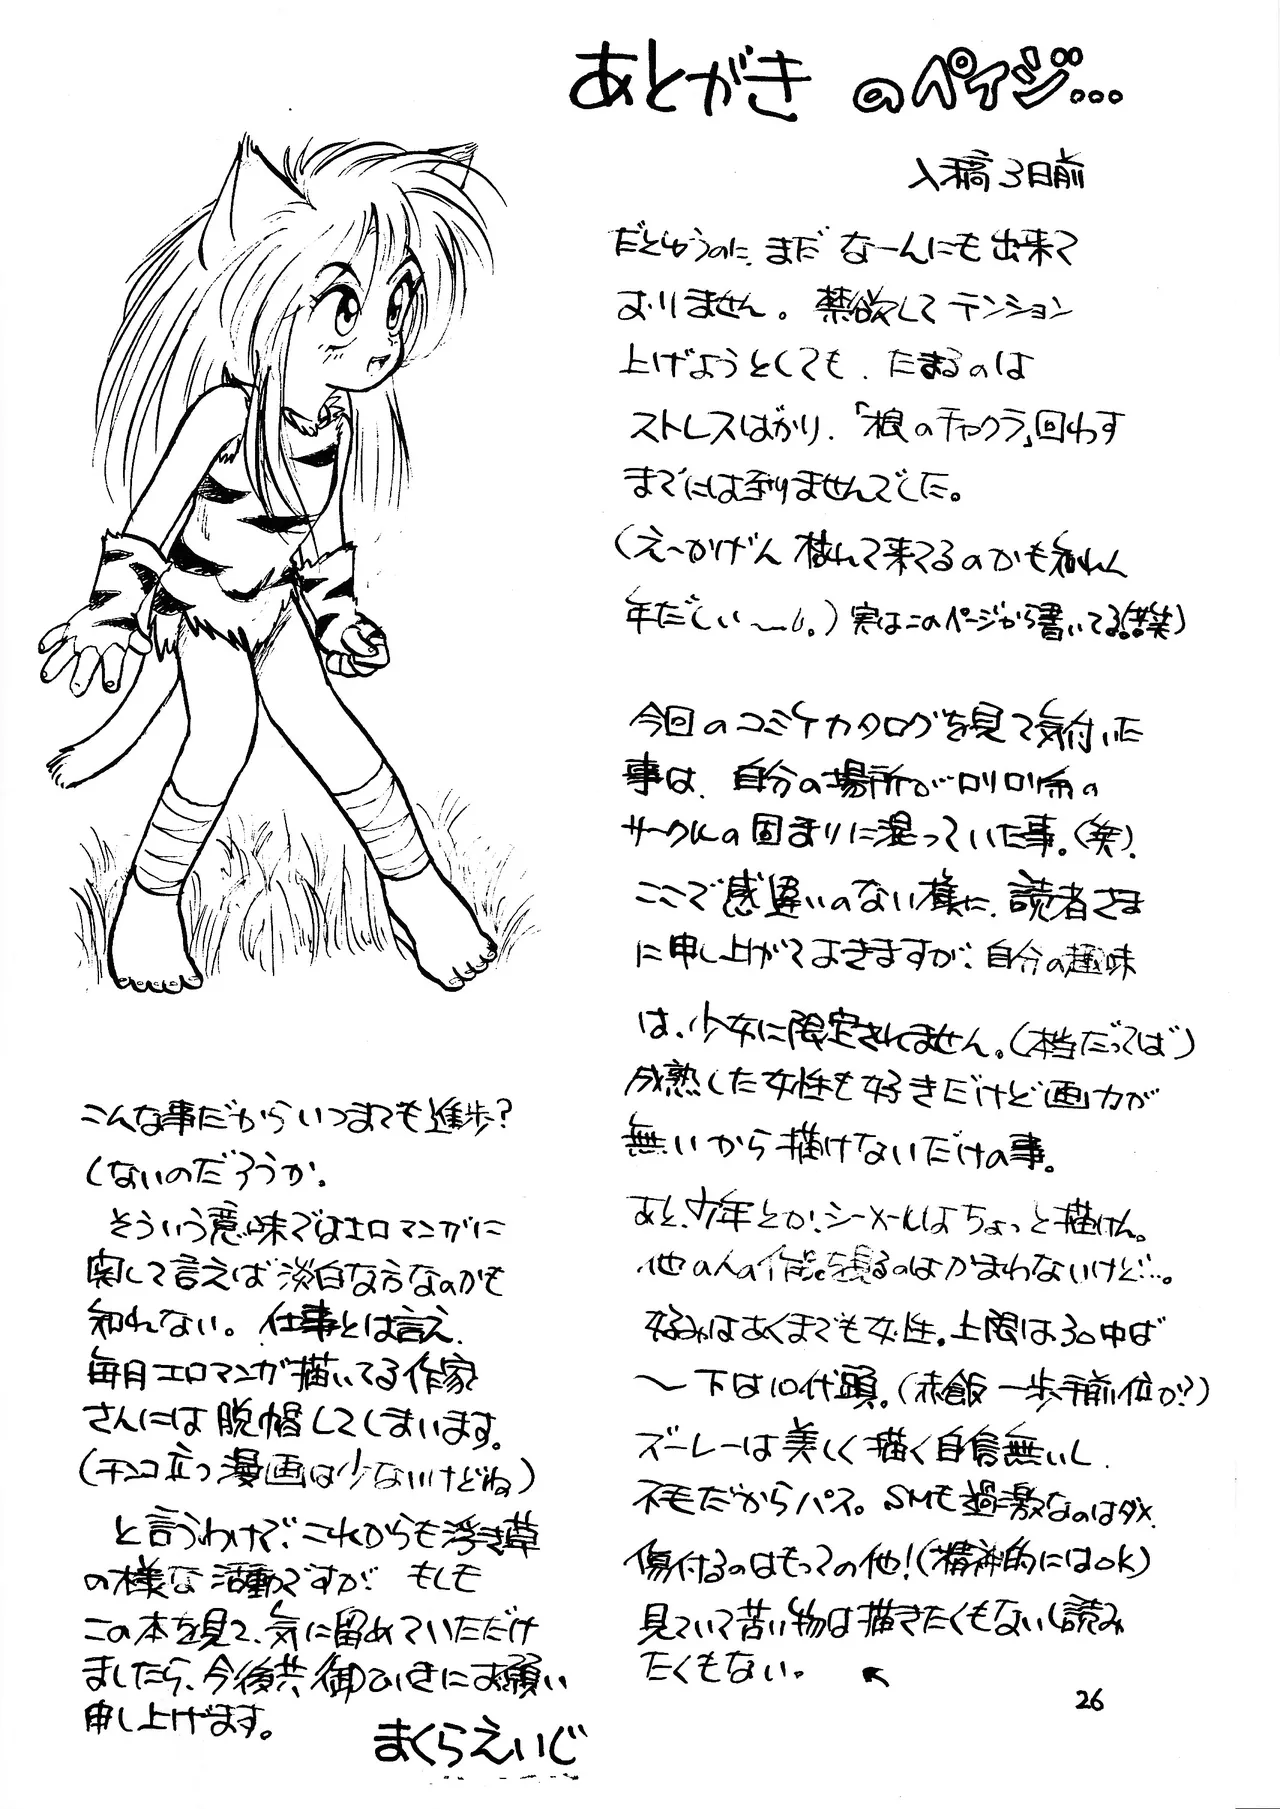 あとがき のペイジ…
入稿3日前
だとゆうのに、まだ なーんにも出来て
おりません。禁欲して テンション
上げようとしても、たまるのは
ストレスばかり、「根のチャクラ」回わす
までには到りませんでした。
(えーかげん 枯れて来てるのかも知れん
年だしぃ〜。)実はこのページから書いてる(笑)
今回のコミケカタログを見て気付いた
事は、自分の場所がロリロリ系の
サークルの固まりに混っていた事。(笑)、
ここで感違いのない様に、読者さま
に申し上げておきますが、自分の趣味
は、少女に限定されてません。(本当だってば)
成熟した女性も好きだけど画力が
無いから描けないだけの事。
あと、少年とか、シーメールはちょっと描けん。
他の人の作品を観るのはかまわないけど…。
好みはあくまでも女性。上限は30中ば
〜下は10代頭。(赤飯一歩手前位か?)
ズーレーは美しく描く自信無いし、
不毛だからパス。SMも過激なのはダメ、
傷付るのはもっての他!(精神的にはOK)
見ていて苦い物は描きたくもないし読み
たくもない。
こんな事だからいつまでも進歩?
しないのだろうか。
そういう意味ではエロマンガに
関して言えば淡白な方なのかも
知れない。仕事とは言え、
毎月エロマンガ描いてる作家
さんには脱帽してしまいます。
(チンコ立つ漫画は少ないけどね)
と言うわけで、これからも浮き草
の様な活動ですが、もしも
この本を見て、気に留めていただけ
ましたら、今後共、御ひいきにお願い
申し上げます。
まくらえいじ
26